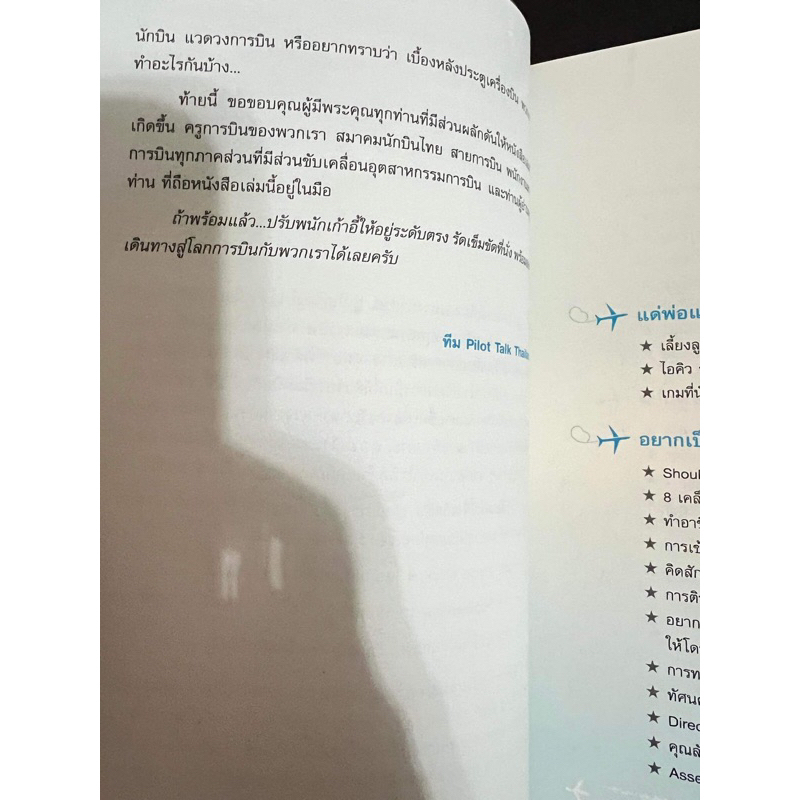 นักบิน แวดวงการบิน หรืออยากทราบว่า เบื้องหลังประตูเครื่องบิน
ทำอะไรกันบ้าง...
ท้ายนี้ ขอขอบคุณผู้มีพระคุณทุกท่านที่มีส่วนผลักดันให้หนังสือ
เกิดขึ้น ครูการบินของพวกเรา สมาคมนักบินไทย สายการบิน พนักงาน
การบินทุกภาคส่วนที่มีส่วนขับเคลื่อนอุตสาหกรรมการบิน และท่านผู้อ่าน
ท่าน ที่ถือหนังสือเล่มนี้อยู่ในมือ
ถ้าพร้อมแล้ว...ปรับพนักเก้าอี้ให้อยู่ระดับตรง รัดเข็มขัดที่นั่ง
เดินทางสู่โลกการบินกับพวกเราได้เลยครับ
ทีม Pilot Talk
แด่พ่อแ
★ เลี้ยงลู
★ ไอคิว
★ เกมที่นั
อยากเป็
★ Shoul
★ 8 เคล็
★ ทำอาชี
★ การเข้
★ คิดสัก
★ การติว
★ อยาก
ให้โด
★ การท
★ ทัศนค
★ Direc
★ คุณลั
★ Asse